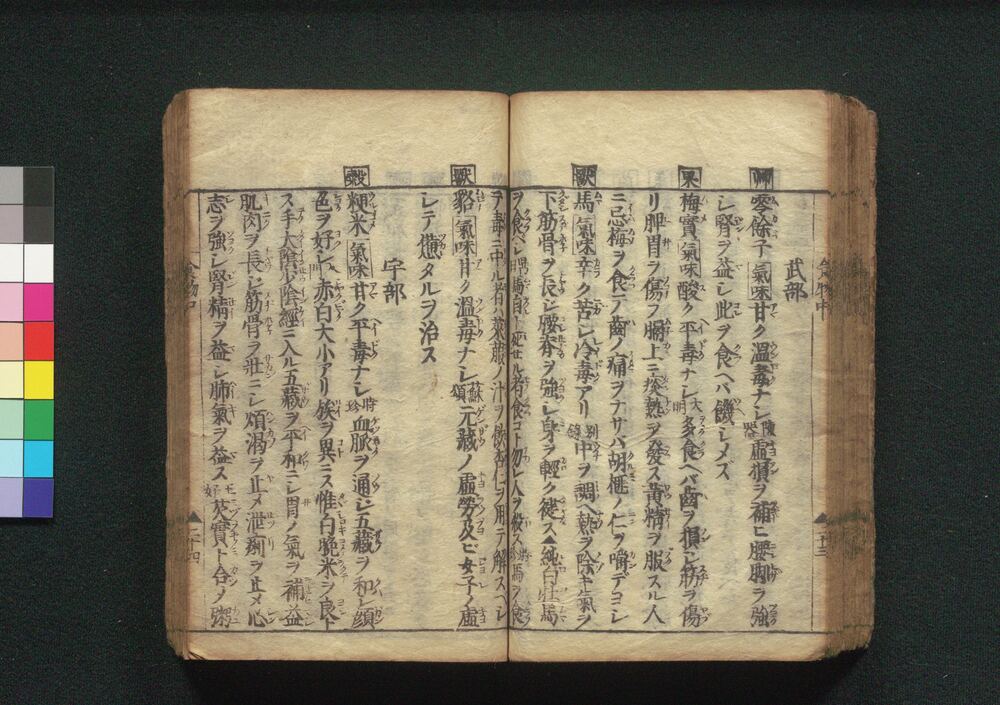 武部
艸 𦽦餘子 氣味甘ク温毒ナシ 陳器 虛損ヲ補ヒ腰胸ヲ強
シ腎ヲ益シ此ヲ食ヘバ饑シメズ
果 梅實 氣味酸ク平毒ナシ 大明 多食ヘバ齒ヲ損シ筋ヲ傷
リ脾胃ヲ傷フ膈上ニ痰熱ヲ發ス黃精ヲ服スル人
ニ忌梅ヲ食テ齒ノ痛ヲナサバ胡桃ノ仁ヲ嚼デヨシ
獸 馬 氣味辛ク苦シ冷毒アリ 別錄 中ヲ調ヘ熱ヲ除キ氣ヲ
下筋骨ヲ長シ腰脊ヲ強シ身ヲ輕ク徤ス▲純白牡馬
ヲ食ベシ 自ト死セル者食コト勿レ人ヲ殺ス 馬ヲ食
テ毒ニ中ル者ハ菜菔ノ汁ヲ飲杏仁ヲ用テ解スベシ
獸 貉 氣味甘ク温毒ナシ 蘇頌 元藏ノ虛勞及ビ女子ノ虛
シテ憊タルヲ治ス
宇部
穀 粳米 氣味甘ク平毒ナシ 時珍 血脈ヲ通シ五藏ヲ和シ顏
色ヲ好シ 赤白大小アリ族ヲ異ニス惟白晩米ヲ良ト
ス手太陰少陰經ニ入ル五藏ヲ平和ニシ胃ノ氣ヲ補益
肌肉ヲ長シ筋骨ヲ壯ニシ煩渴ヲ止メ泄痢ヲ止メ心
志ヲ強シ腎精ヲ益シ肺氣ヲ益ス 好 芡實ト合メ粥